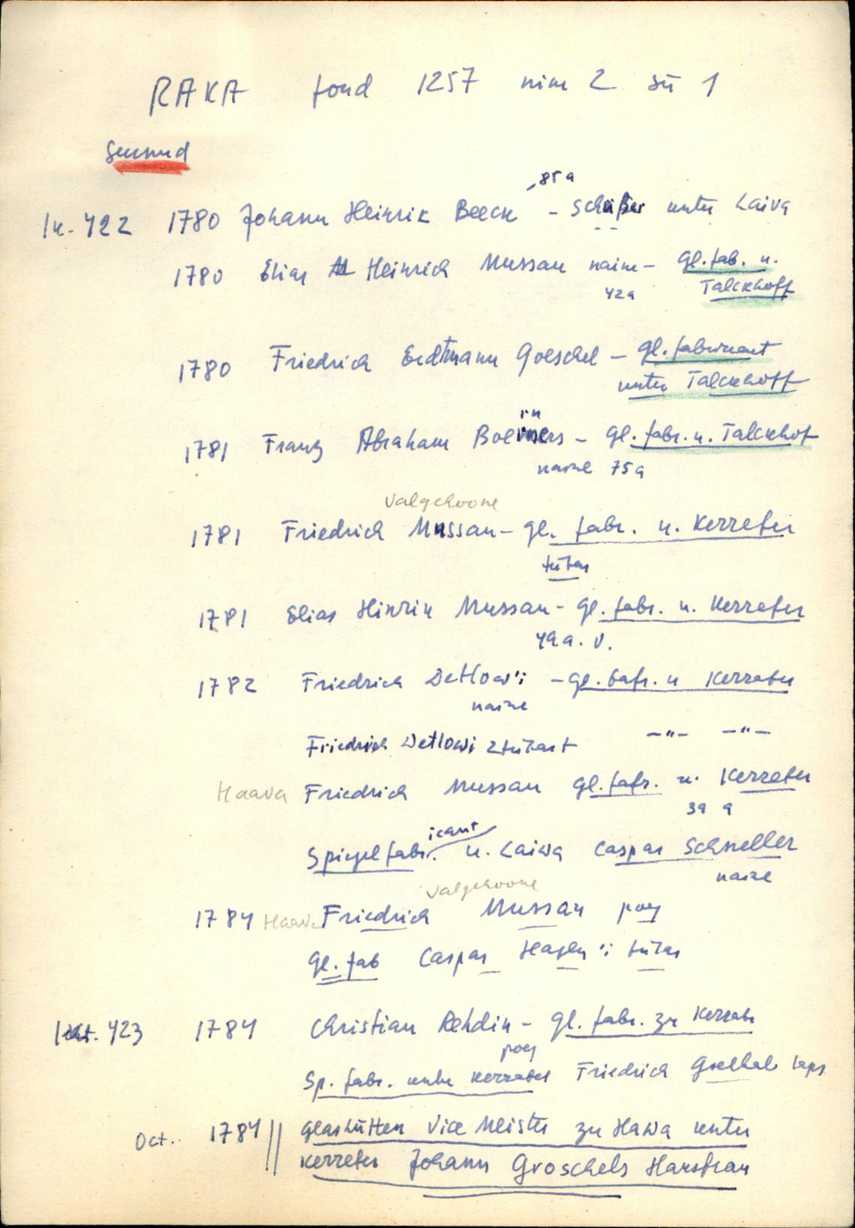 RAKA fond 1257 nim 2 sü 1
Surnud
lk. 422 1780 Johann Heinrik Beeck, 85 a - Schäfer unter Laiva
1780 Elias Heinrich Mussau naine - gl. fab. u.
42 a Talckhoff
1780 Friedrich Erdtmann Goeschel - gl. fabricant
unter Talckhoff
1781 Franz Abraham Boerners - gl. fabr. u. Talckhof
in
naine 75 a
Valgekoone
1781 Friedrich Mussau - gl. fabr. u. Kerrefer
tütar
1781 Elias Hinrik Mussau - gl. fabr. u. Kerrefer
49 a. v.
1782 Friedrich Detlow'i - gl. fabr. u Kerrefer
naine
Friedrich Detlowi 2 tütart -"- -"-
Haava Friedrich Mussau gl. fabr. u. Kerrefer
39 a
Spiegelfabricant u. Laiwa Caspar Schneller
naine
Valgekoone
1784 Haava Friedrich Mussau poeg
Gl. fab Caspar Hagen'i tütar
lk. 423 1784 Christian Rehdin - gl. fabr. zu Kerrefer
poeg
Sp. fabr. unter Kerrafer Friedrich laps
Oct. 1784 || Glashütten Vice Meister zu Hawa unter
Kerrefer Johann Groschels Hausfrau